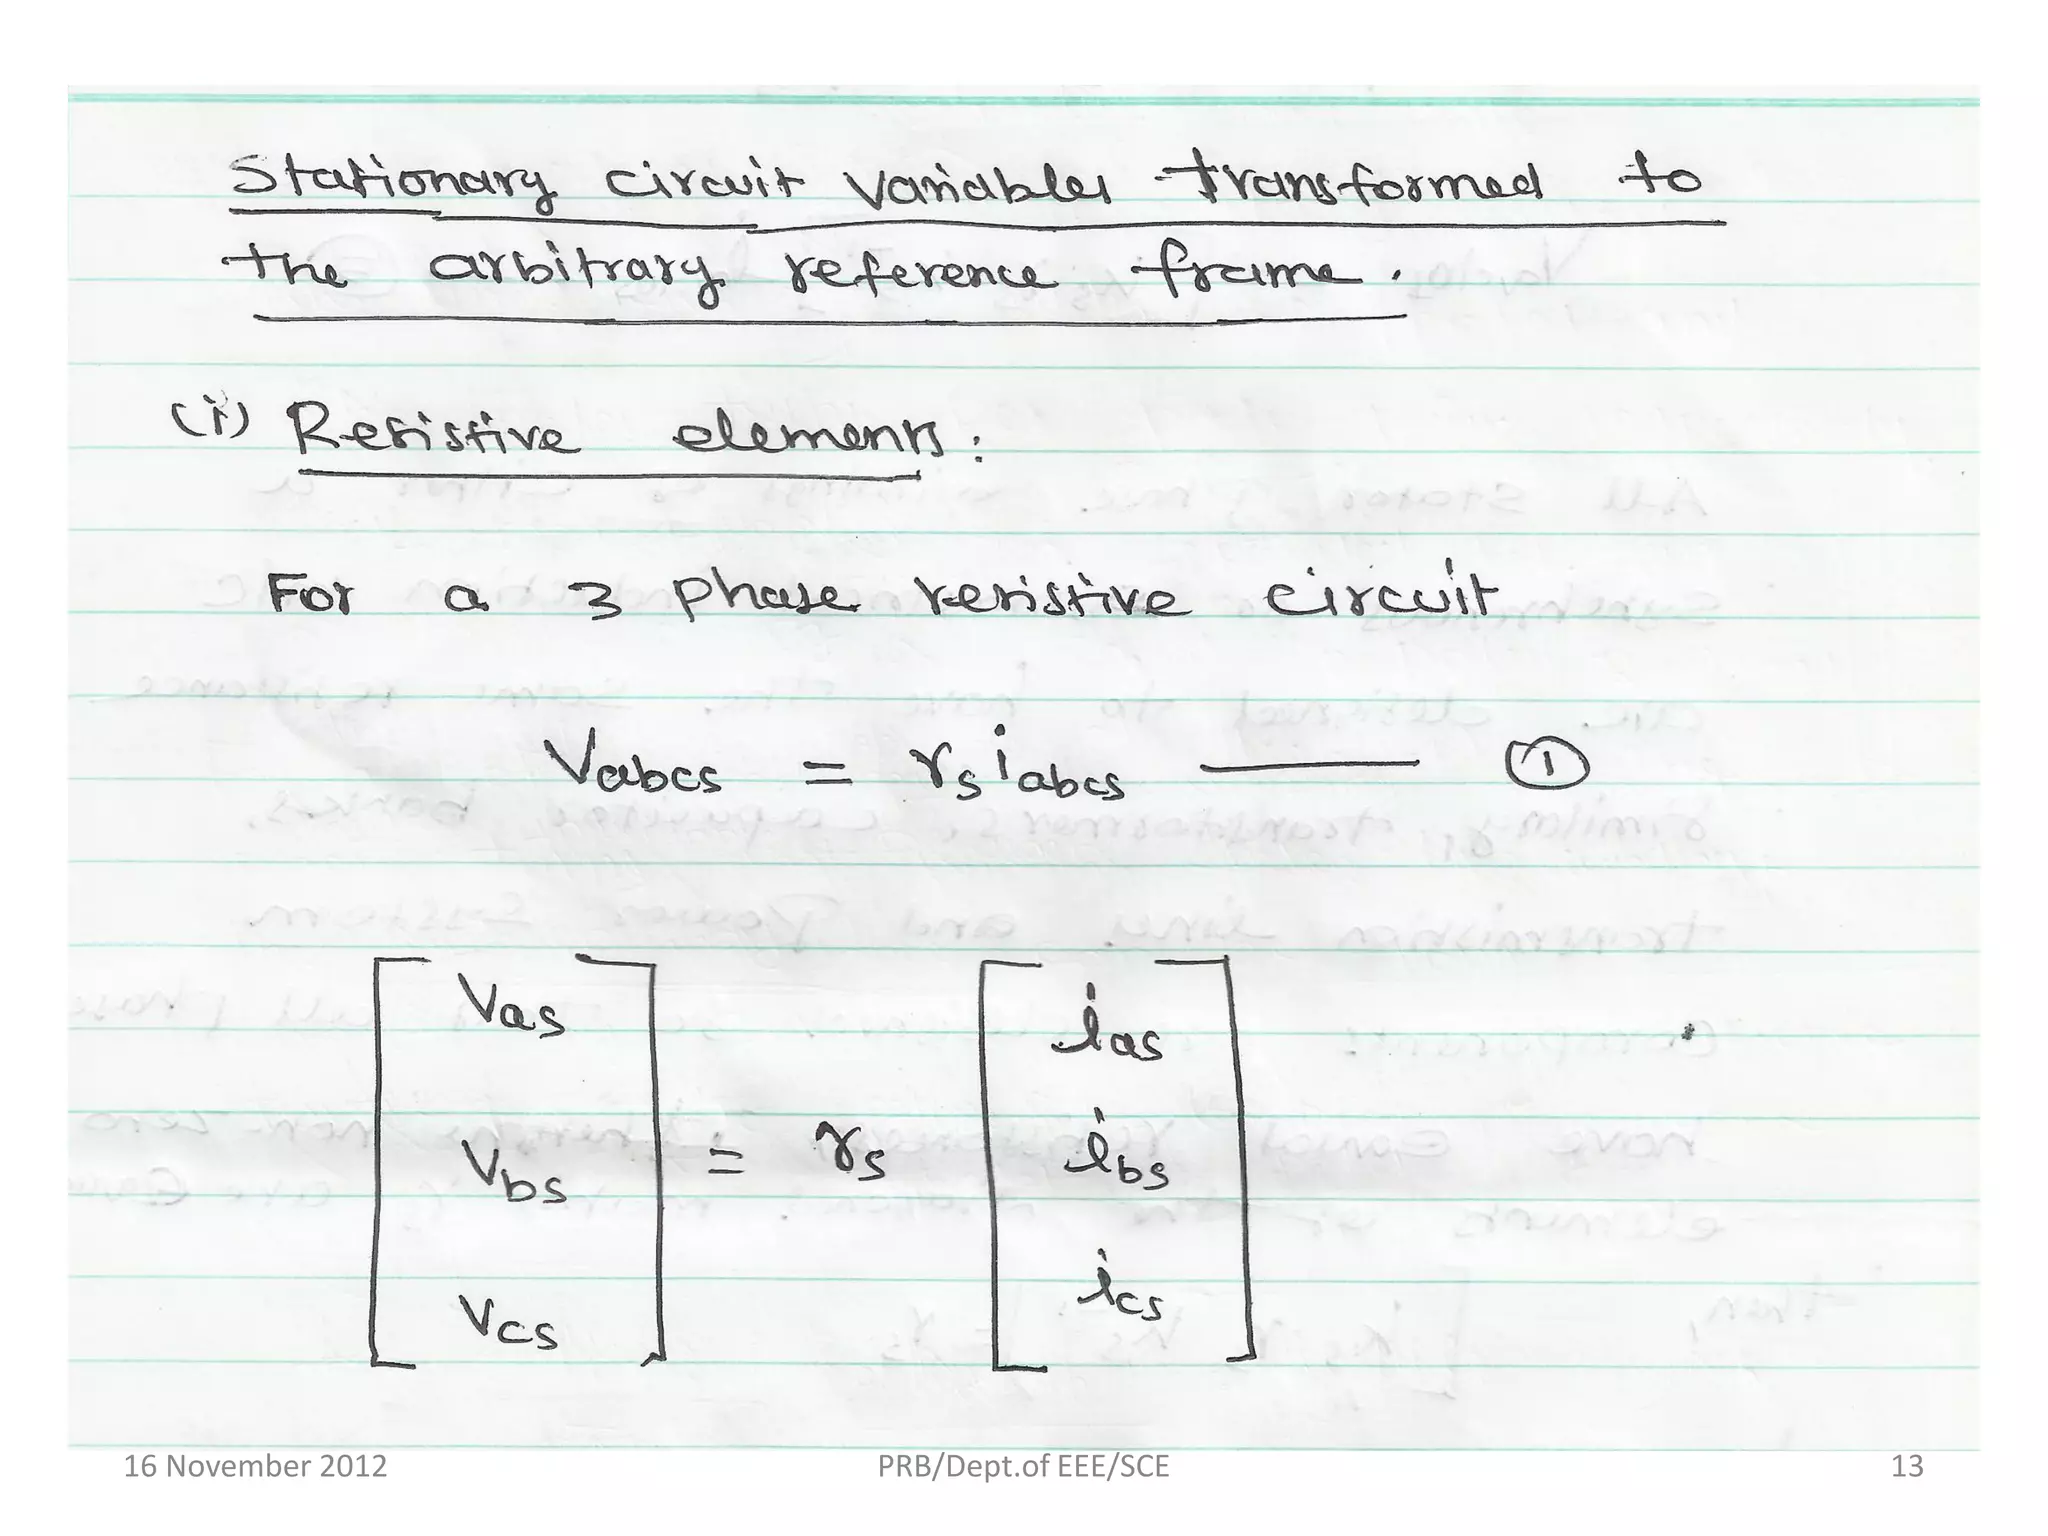 Stationary circuit variables transformed to
the arbitrary reference frame.
(i) Resistive elements:
For a 3 phase resistive circuit
Vabcs = rs iabcs —— ①
[Vas] [ias]
[Vbs] = rs [ibs]
[Vcs] [ics]
16 November 2012 PRB/Dept.of EEE/SCE 13